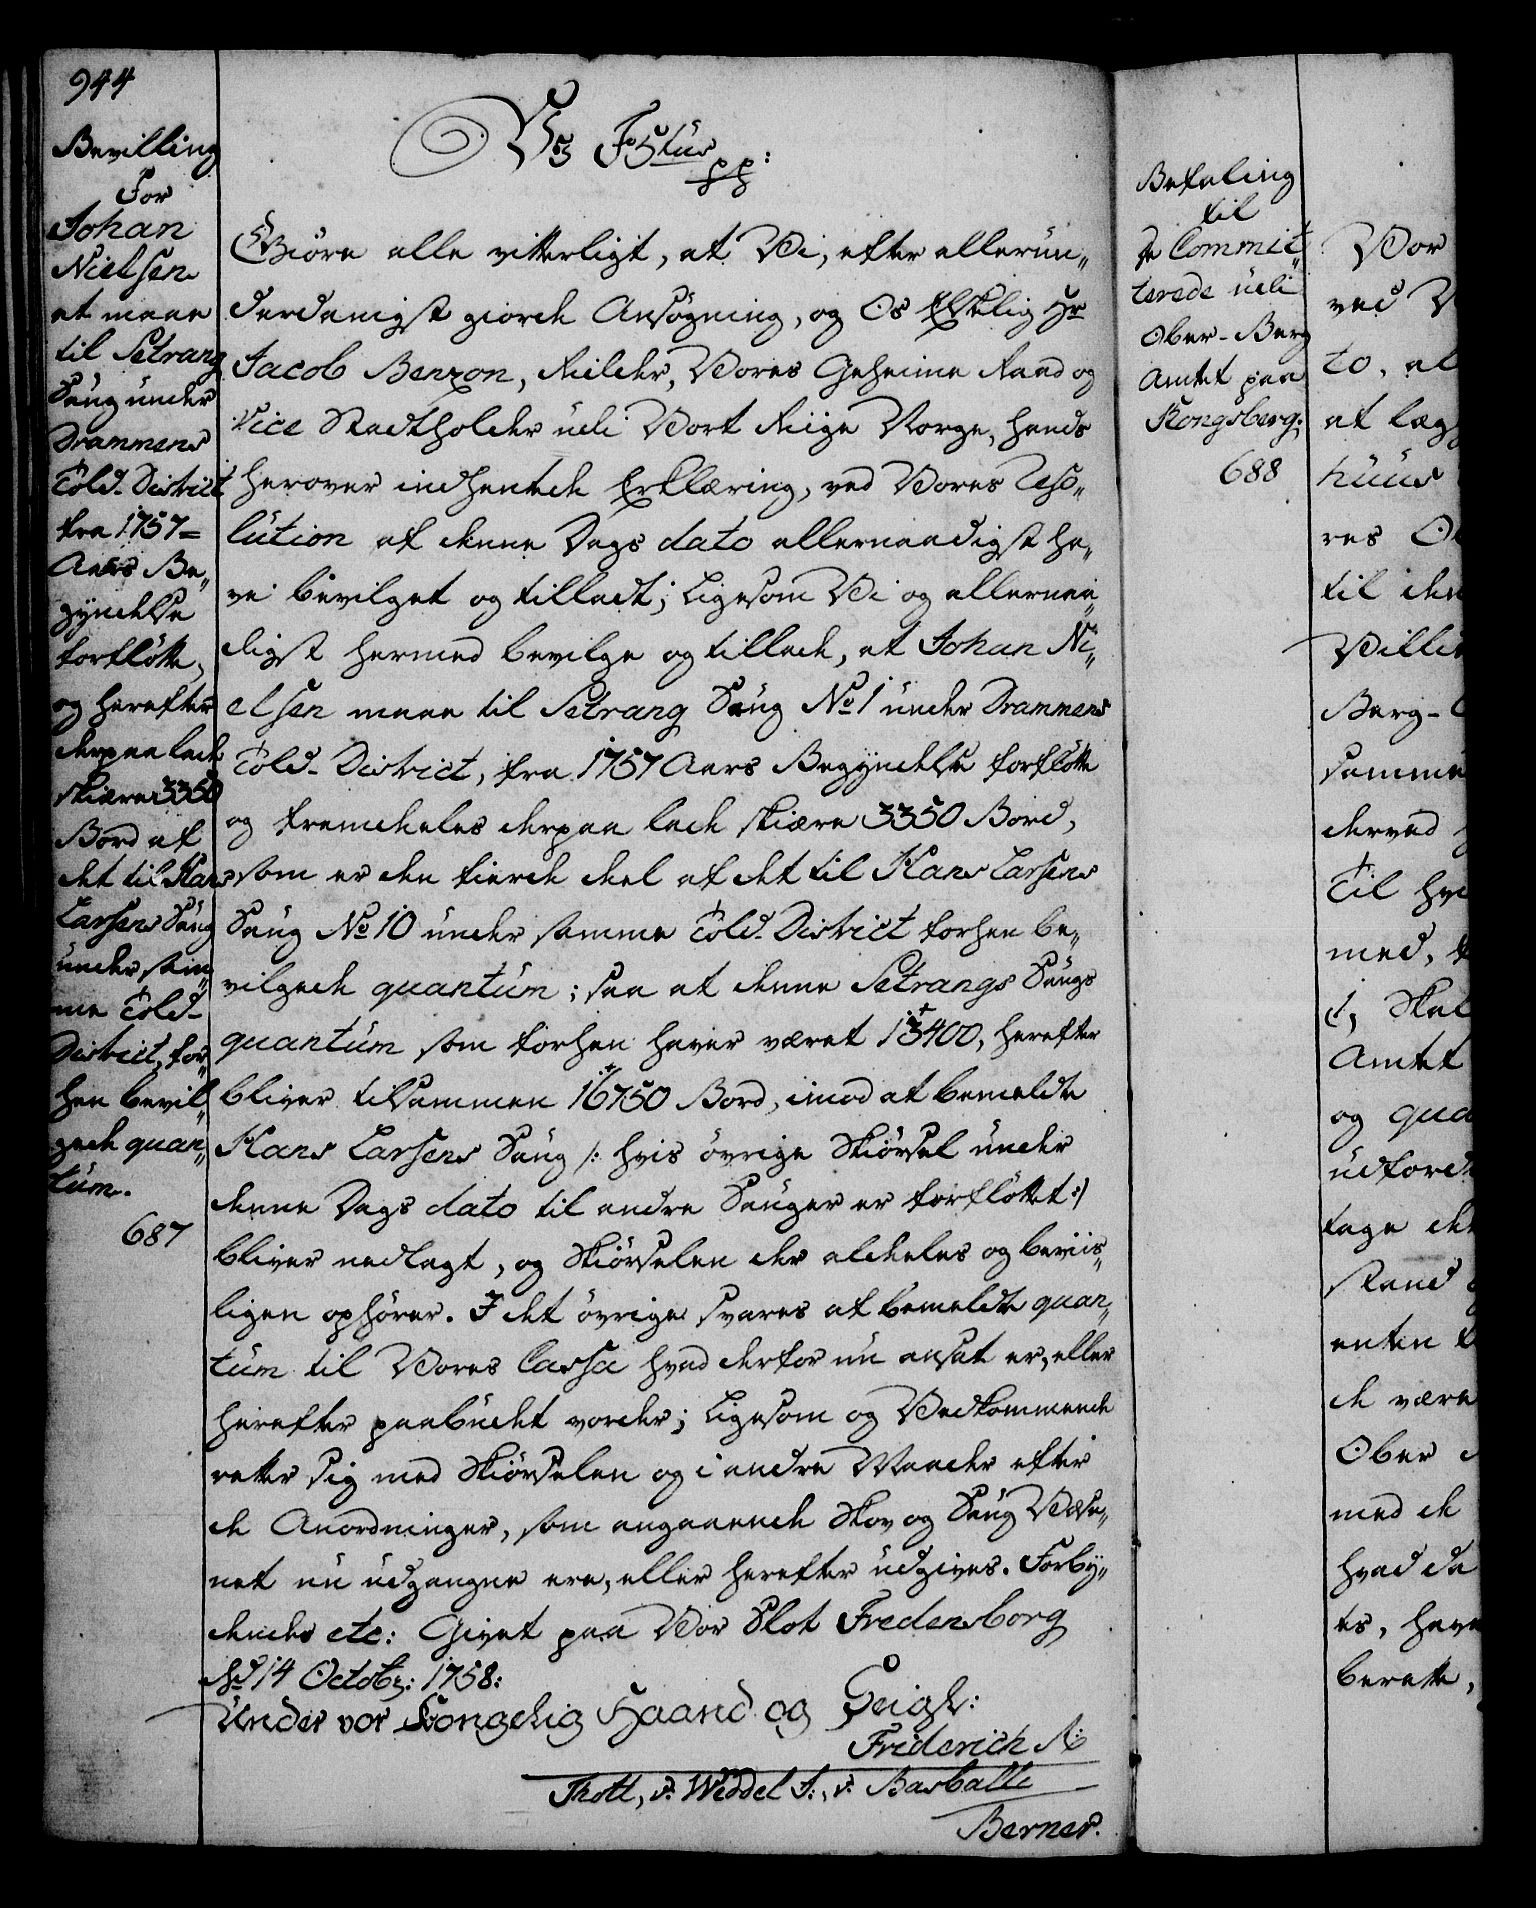 944
Bevilling
For
Johan
Nielsen
at maae
til Setrang
Saug under
Drammens
Told-District
fra 1757=
Aars Be„
gyndelse
forflötte,
og herefter
derpaa lade
skiære 3350
Bord af
det til Hans
Larsens Saug
under sam„
me Told-
District, for„
hen bevil„
gede quan„
tum.
687
Vg F 5tus pp:
Giöre alle vitterligt, at Vi, efter allerun„
derdanigst giorde Ansögning, og Os Elskelig Hr
Jacob Benzon, Ridder, Vores Geheime Raad og
Vice Stadtholder udi Vort Riige Norge, hands
herover indhentede Erklæring, ved Vores Reso„
lution af denne Dags dato allernaadigst ha„
ve bevilget og tilladt; Ligesom Vi og allernaa„
digst hermed bevilge og tillade, at Johan Ni„
elsen maae til Setrang Saug No 1 under Drammens
Told-District, fra 1757 Aars Begyndelse forflötte
og fremdeles derpaa lade skiære 3350 Bord,
som er den fierde deel af det til Hans Larsens
Saug No 10 under samme Told-District forhen be„
vilgede quantum; saa at denne Setrangs Saugs
quantum som forhen haver været 13400, herefter
bliver tilsammen 16750 Bord, imod at bemeldte
Hans Larsens Saug /: hvis övrige Skiörsel under
denne Dags dato til andre Sauger er forflöttet :/
bliver nedlagt, og Skiörselen der aldeles og beviis„
ligen ophörer. I det övrige svares af bemeldte quan„
tum til Vores Cassa hvad derfor nu ansat er, eller
herefter paabudet vorder; Ligesom og Vedkommende
retter sig med Skiörselen og i andre Maader efter
de Anordninger, som angaaende Skov og Saug Væse„
net nu udgangne ere, eller herefter udgives. Forby„
dendes etc: Givet paa Vor Slot Fredensborg
hd 14 Octobr: 1758:
Under vor Kongelig Haand og Seigl:
Friderich R:
Thott, v. Weddel F:, v. Barballe
Berner.
Befaling
til
de Commit„
terede udi
Ober-Berg
Amtet paa
Kongsberg.
688
Vor
ved V
to, al
at læg
huus
res O
til den
Villie
Berg-
samme
derved
Til hve
med,
d, Skal
Amtet
og qua
udford
tage de
stand
enten
de være
Ober
med de
hvad da
es, have
berette,